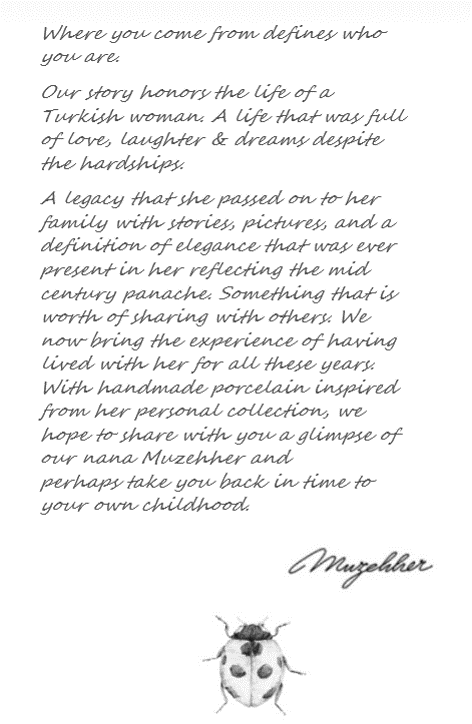 Where you come from defines who
you are.
Our story honors the life of a
Turkish woman. A life that was full
of love, laughter & dreams despite
the hardships.
A legacy that she passed on to her
family with stories, pictures, and a
definition of elegance that was ever
present in her reflecting the mid
century panache. Something that is
worth of sharing with others. We
now bring the experience of having
lived with her for all these years.
With handmade porcelain inspired
from her personal collection, we
hope to share with you a glimpse of
our nana Muzehher and
perhaps take you back in time to
your own childhood.
Muzehher